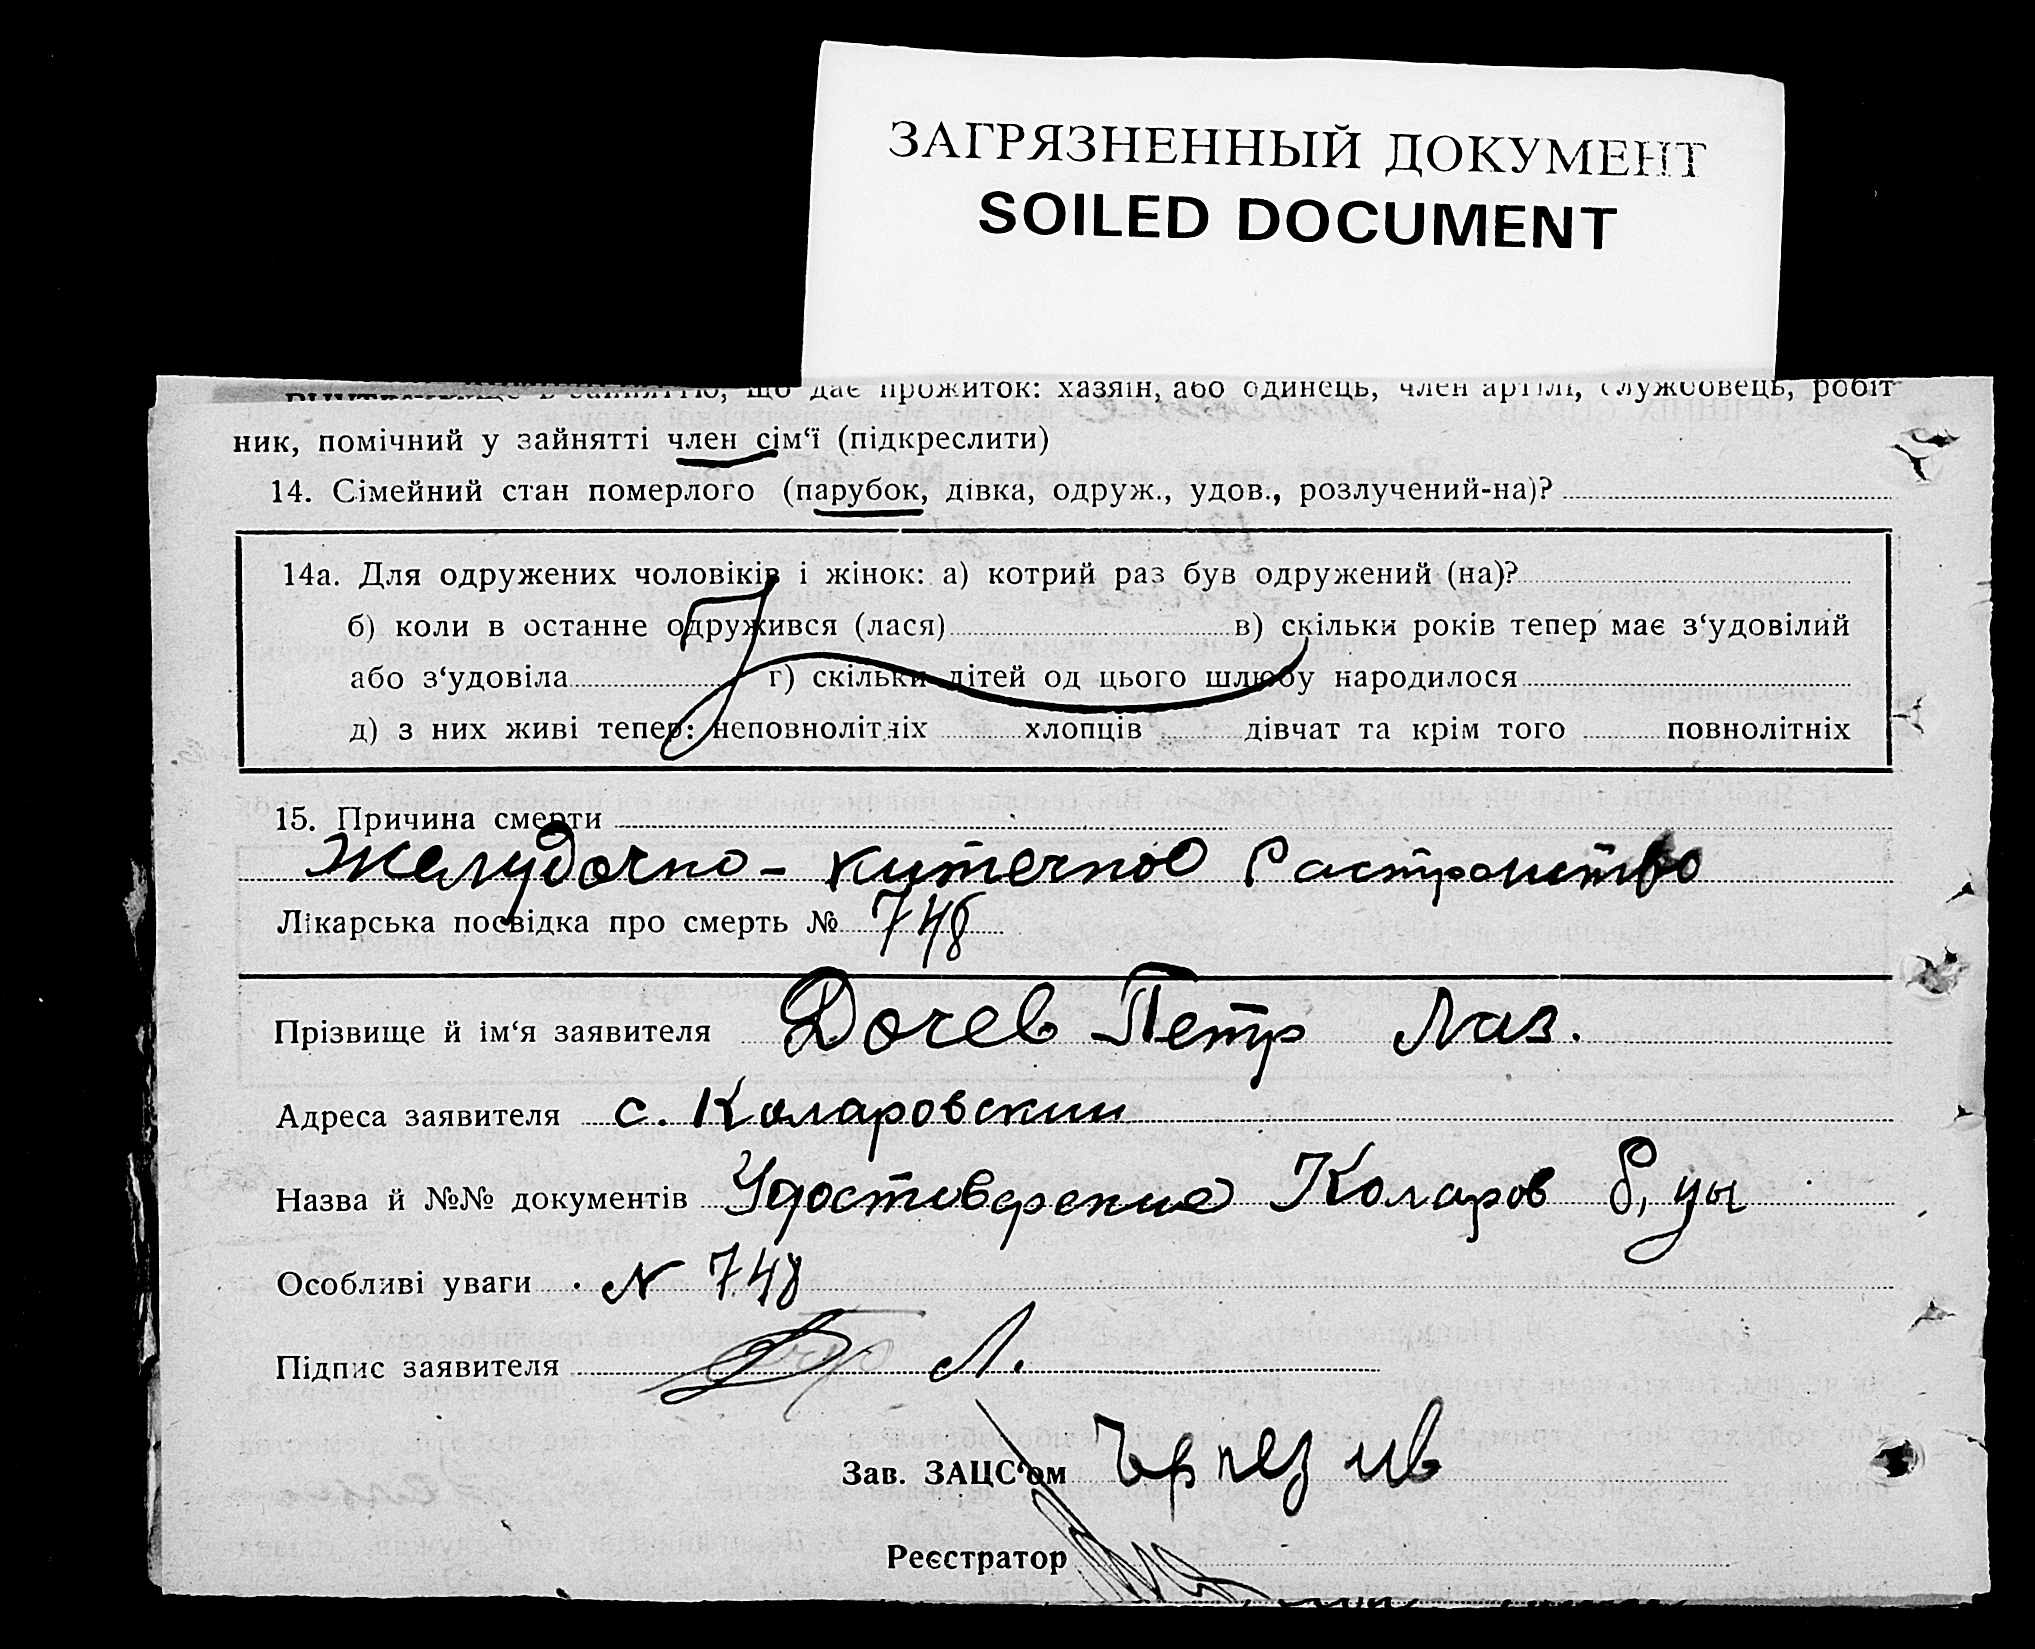 ЗАГРЯЗНЕННЫЙ ДОКУМЕНТ
SOILED DOCUMENT
що дає прожиток: хазяїн, або одинець, член артілі, службовець, робіт
ник, помічний у зайнятті член сім‘ї (підкреслити)
14. Сімейний стан померлого (парубок, дівка, одруж., удов., розлучений-на)?
14а. Для одружених чоловіків і жінок: а) котрий раз був одружений (на)?
б) коли в останне одружився (лася) в) скільки років тепер має з‘удовілий
або з‘удовіла г) скільки дітей од цього шлюбу народилося
д) з них живі тепер: неповнолітніх хлопців дівчат та крім того повнолітніх
15. Причина смерти
Желудочно - кишечное Растройство
Лікарська посвідка про смерть № 748
Прізвище й ім‘я заявителя Дочев Петр Лаз.
Адреса заявителя с. Коларовский
Назва й №№ документів Удостоверение Коларов
Особливі уваги N 748
Підпис заявителя Л.
Зав. ЗАЦС‘ом
Реєстратор